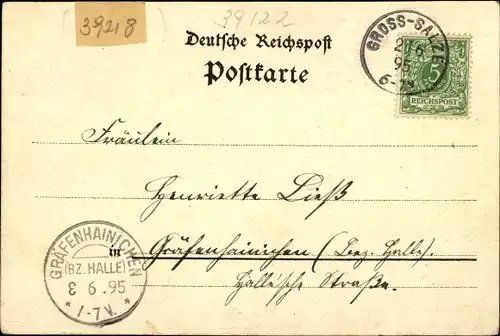 39218
39122
Deutsche Reichspost
Postkarte
GROSS-SALZE
2 6
95
6-7N.
5
REICHSPOST
Fräulein
Henriette Ließ
in Gräfenhainichen (Bez. Halle).
Halle'sche Straße.
GRÄFENHAINICHEN
(BZ. HALLE)
3 6 .95
* 1-7V. *